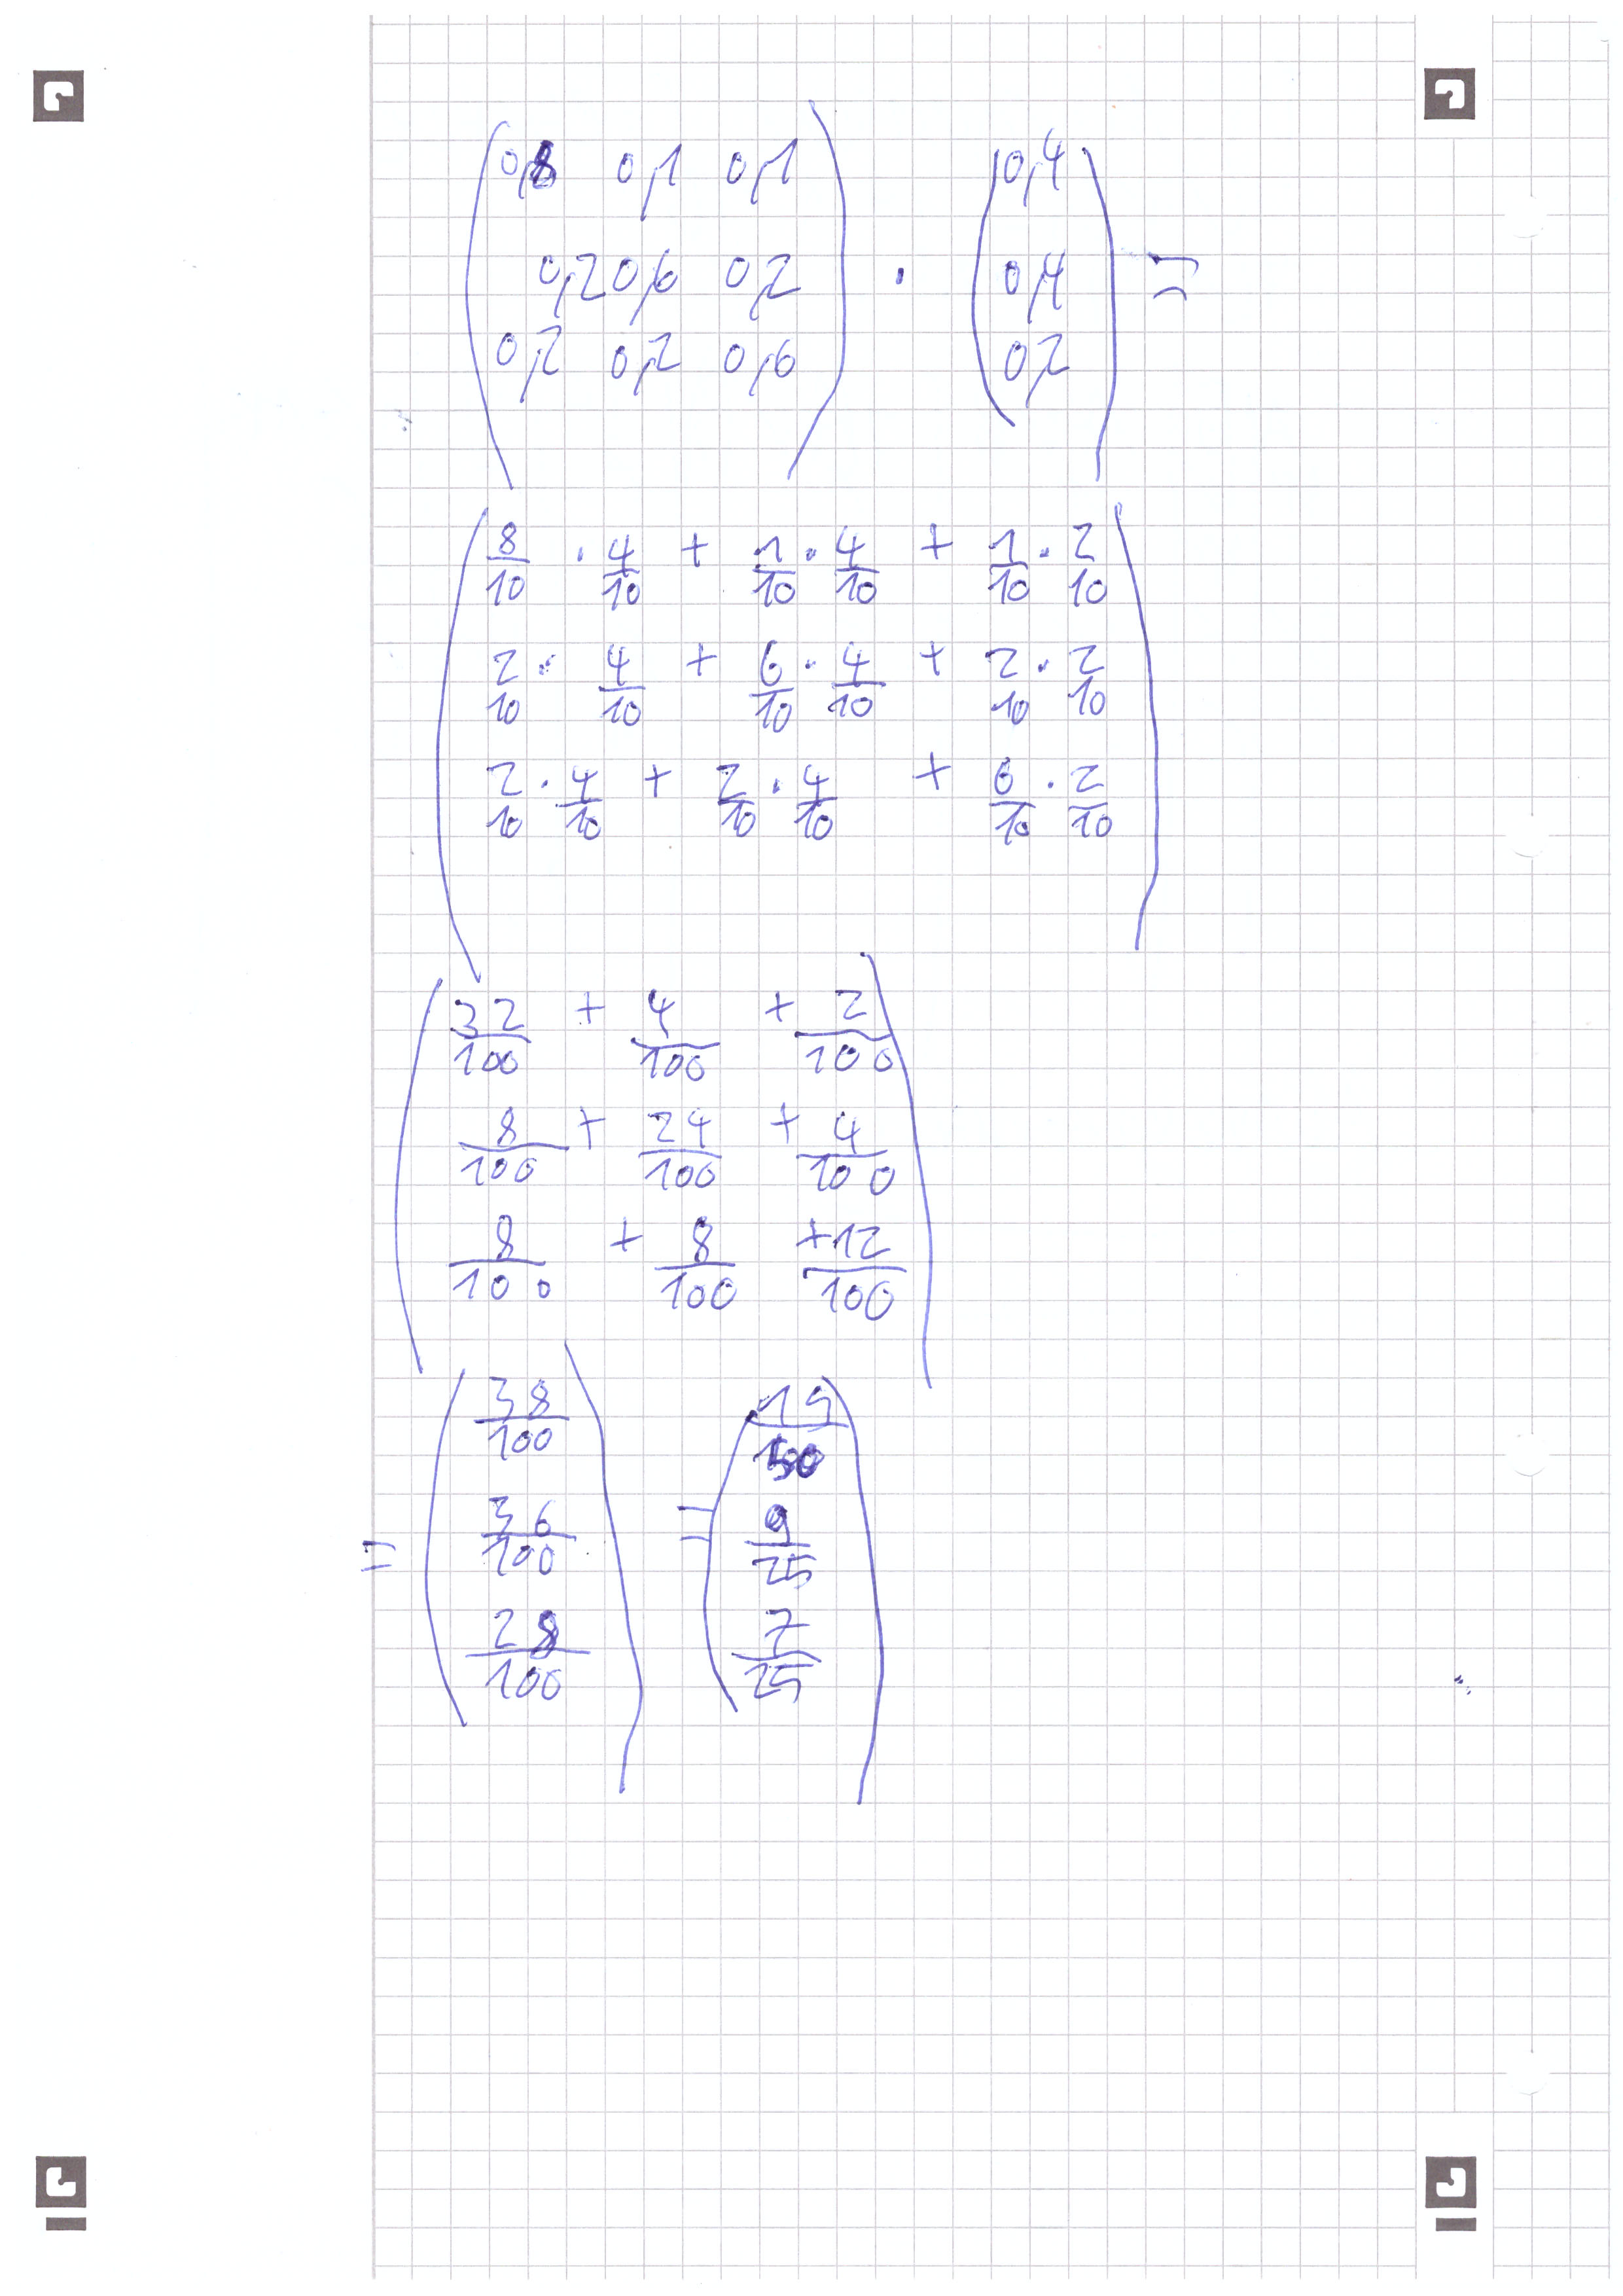 0,8 0,1 0,1 0,4
0,2 0,6 0,2 · 0,4 =
0,2 0,2 0,6 0,2
8/10 · 4/10 + 1/10 · 4/10 + 1/10 · 2/10
2/10 · 4/10 + 6/10 · 4/10 + 2/10 · 2/10
2/10 · 4/10 + 2/10 · 4/10 + 6/10 · 2/10
32/100 + 4/100 + 2/100
8/100 + 24/100 + 4/100
8/100 + 8/100 + 12/100
38/100 19/50
= 36/100 = 9/25
28/100 7/25